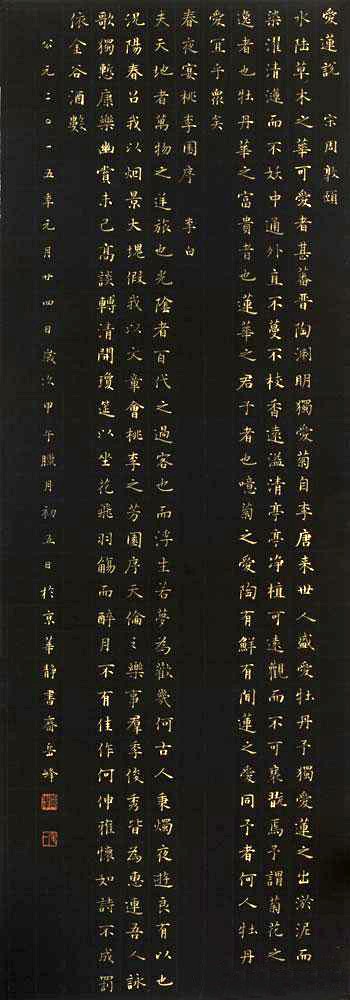 愛蓮說 宋 周敦頤
水陸草木之華可愛者甚蕃晋陶淵明獨愛菊自李唐來世人盛愛牡丹予獨愛蓮之出淤泥而
染濯清漣而不妖中通外直不蔓不枝香遠溢清亭亭净植可遠觀而不可褻翫焉予謂菊花之
逸者也牡丹華之富貴者也蓮華之君子者也噫菊之愛陶有鮮有聞蓮之愛同予者何人牡丹
愛宜乎眾矣
春夜宴桃李園序 李白
夫天地者萬物之逆旅也光陰者百代之過客也而浮生若夢為歡幾何古人秉燭夜遊良有以也
況陽春召我以烟景大塊假我以文章會桃李之芳園序天倫之樂事羣季俊秀皆為惠連吾人詠
歌獨慙康樂幽賞未已高談轉清開瓊筵以坐花飛羽觴而醉月不有佳作何伸雅懷如詩不成罰
依金谷酒數
公元二〇一五年元月廿四日歲次甲午臘月初五日於京華靜書齋岳峰